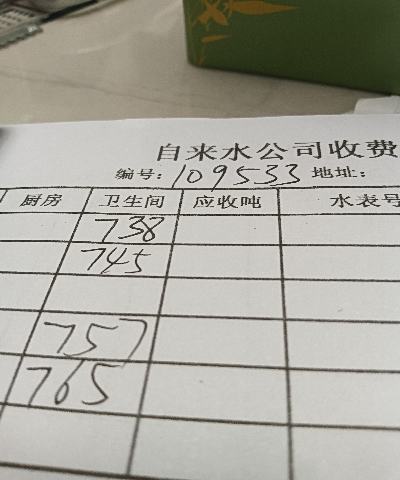 自来水公司收费
编号：109533 地址：
厨房 卫生间 应收吨 水表号
738
745
757
765